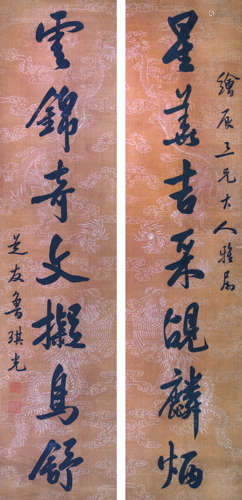 繪辰三兄大人雅屬
星華吉采覘麟炳
雲錦奇文擬鳥舒
芝友魯琪光